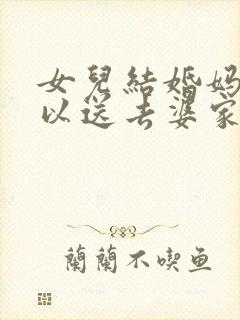 女兒結婚妈
以送去婆家
蘭蘭不喫鱼